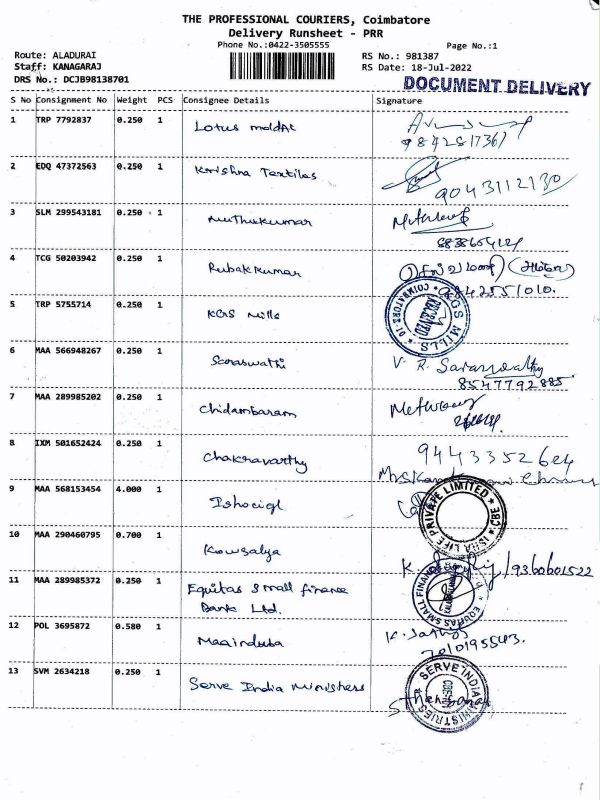 THE PROFESSIONAL COURIERS, Coimbatore
Delivery Runsheet - PRR
Phone No.:0422-3505555
Page No.:1
Route: ALADURAI
Staff: KANAGARAJ
DRS No.: DCJB98138701
RS No.: 981387
RS Date: 18-Jul-2022
DOCUMENT DELIVERY
S No Consignment No Weight PCS Consignee Details Signature
1 TRP 7792837 0.250 1 Lotus
9842817367
2 EDQ 47372563 0.250 1 Krishna Textiles
9043112130
3 SLM 299543181 0.250 1 Muthukumar
4 TCG 50203942 0.250 1 Rubakkumar
9842551010.
5 TRP 5755714 0.250 1 KGS Mills
KGS MILLS COIMBATORE RECEIVED
6 MAA 566948267 0.250 1 Saraswathi
V. R. Saraswathy
8547792885
7 MAA 289985202 0.250 1 Chidambaram
8 IXM 501652424 0.250 1 Chakravarthy
9443352664
9 MAA 568153454 4.000 1
ISRA LIFE PRIVATE LIMITED CBE
10 MAA 290460795 0.700 1 Kowsalya
9360601522
11 MAA 289985372 0.250 1 Equitas Small finance
Bank Ltd.
EQUITAS SMALL FINANCE
12 POL 3695872 0.580 1
7010195543.
13 SVM 2634218 0.250 1 Serve India Ministries
SERVE INDIA MINISTRIES